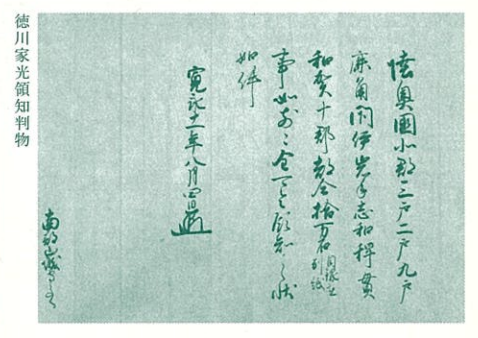 徳川家光領知判物
陸奥國北郡三戸二戸九戸
鹿角閉伊岩手志和稗貫
和賀十郡都合拾万石目録在別紙
事如前々全可令領知之状
如件
寛永十一年八月四日
南部山城守とのへ